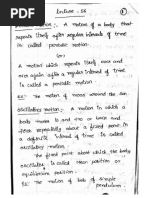 Lecture - 56
Periodic motion :- A motion of a body that
repeats itself after regular intervals of time
is called periodic motion.
(or)
A motion which repeats itself over and
over again after a regular interval of time
is called a periodic motion.
EX:- The motion of moon around the sun
oscillatory motion :- A motion in which a
body moves to and fro or back and
forth repeatedly about a fixed point in
a definite interval of time is called
oscillatory motion.
The fixed point about which the body
oscillates is called mean position or
equilibrium position.
EX:- The motion of bob of simple
pendulum.